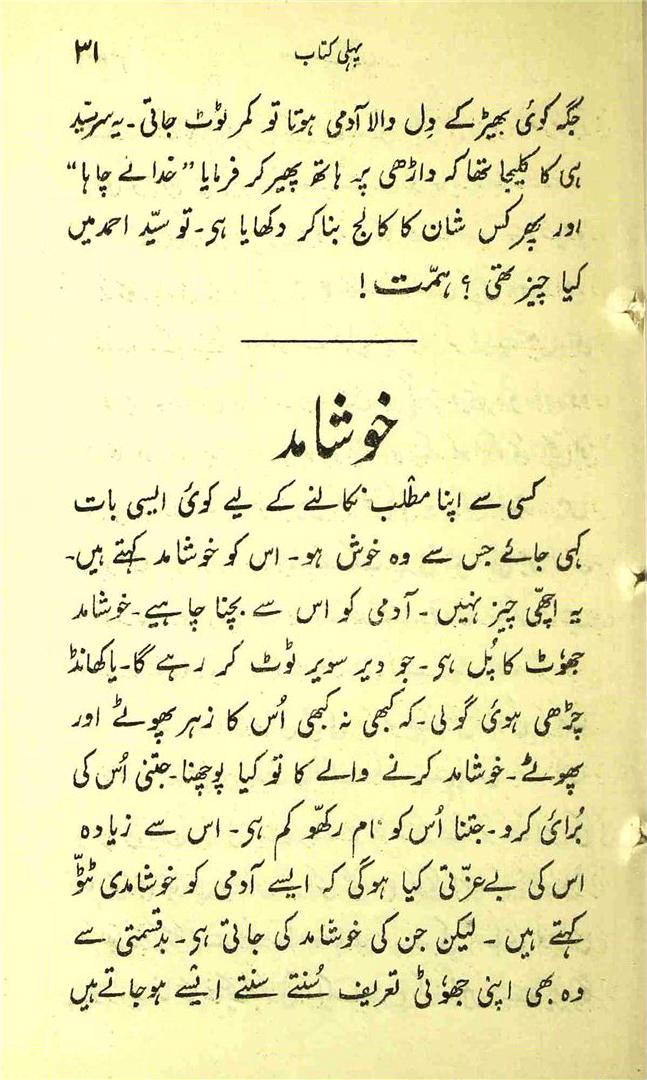 پہلی کتاب
۳۱
جگہ کوئی بھیڑ کے دِل والا آدمی ہوتا تو کمر ٹوٹ جاتی۔ یہ سرسیّد
ہی کا کلیجا تھا کہ داڑھی پر ہاتھ پھیر کر فرمایا ”خدا نے چاہا“
اور پھر کس شان کا کالج بناکر دکھایا ہی۔ تو سیّد احمد میں
کیا چیز تھی ؟ ہمّت !
خوشامد
کسی سے اپنا مطلب نکالنے کے لیے کوئی ایسی بات
کہی جائے جس سے وہ خوش ہو۔ اس کو خوشامد کہتے ہیں۔
یہ اچھّی چیز نہیں۔ آدمی کو اس سے بچنا چاہیے۔ خوشامد
جھوٗٹ کا پُل ہی۔ جو دیر سویر ٹوٹ کر رہے گا۔ یا کھانڈ
چڑھی ہوئی گولی۔ کہ کبھی نہ کبھی اُس کا زہر پھوٹے اور
پھوٹے۔ خوشامد کرنے والے کا تو کیا پوچھنا۔ جتنی اُس کی
بُرائی کرو۔ جتنا اُس کو نام رکھّو کم ہی۔ اس سے زیادہ
اس کی بےعزّتی کیا ہوگی کہ ایسے آدمی کو خوشامدی ٹٹّو
کہتے ہیں ۔ لیکن جن کی خوشامد کی جاتی ہی۔ بدقسمتی سے
وہ بھی اپنی جھوٗٹی تعریف سُنتے سنتے ایسے ہوجاتے ہیں